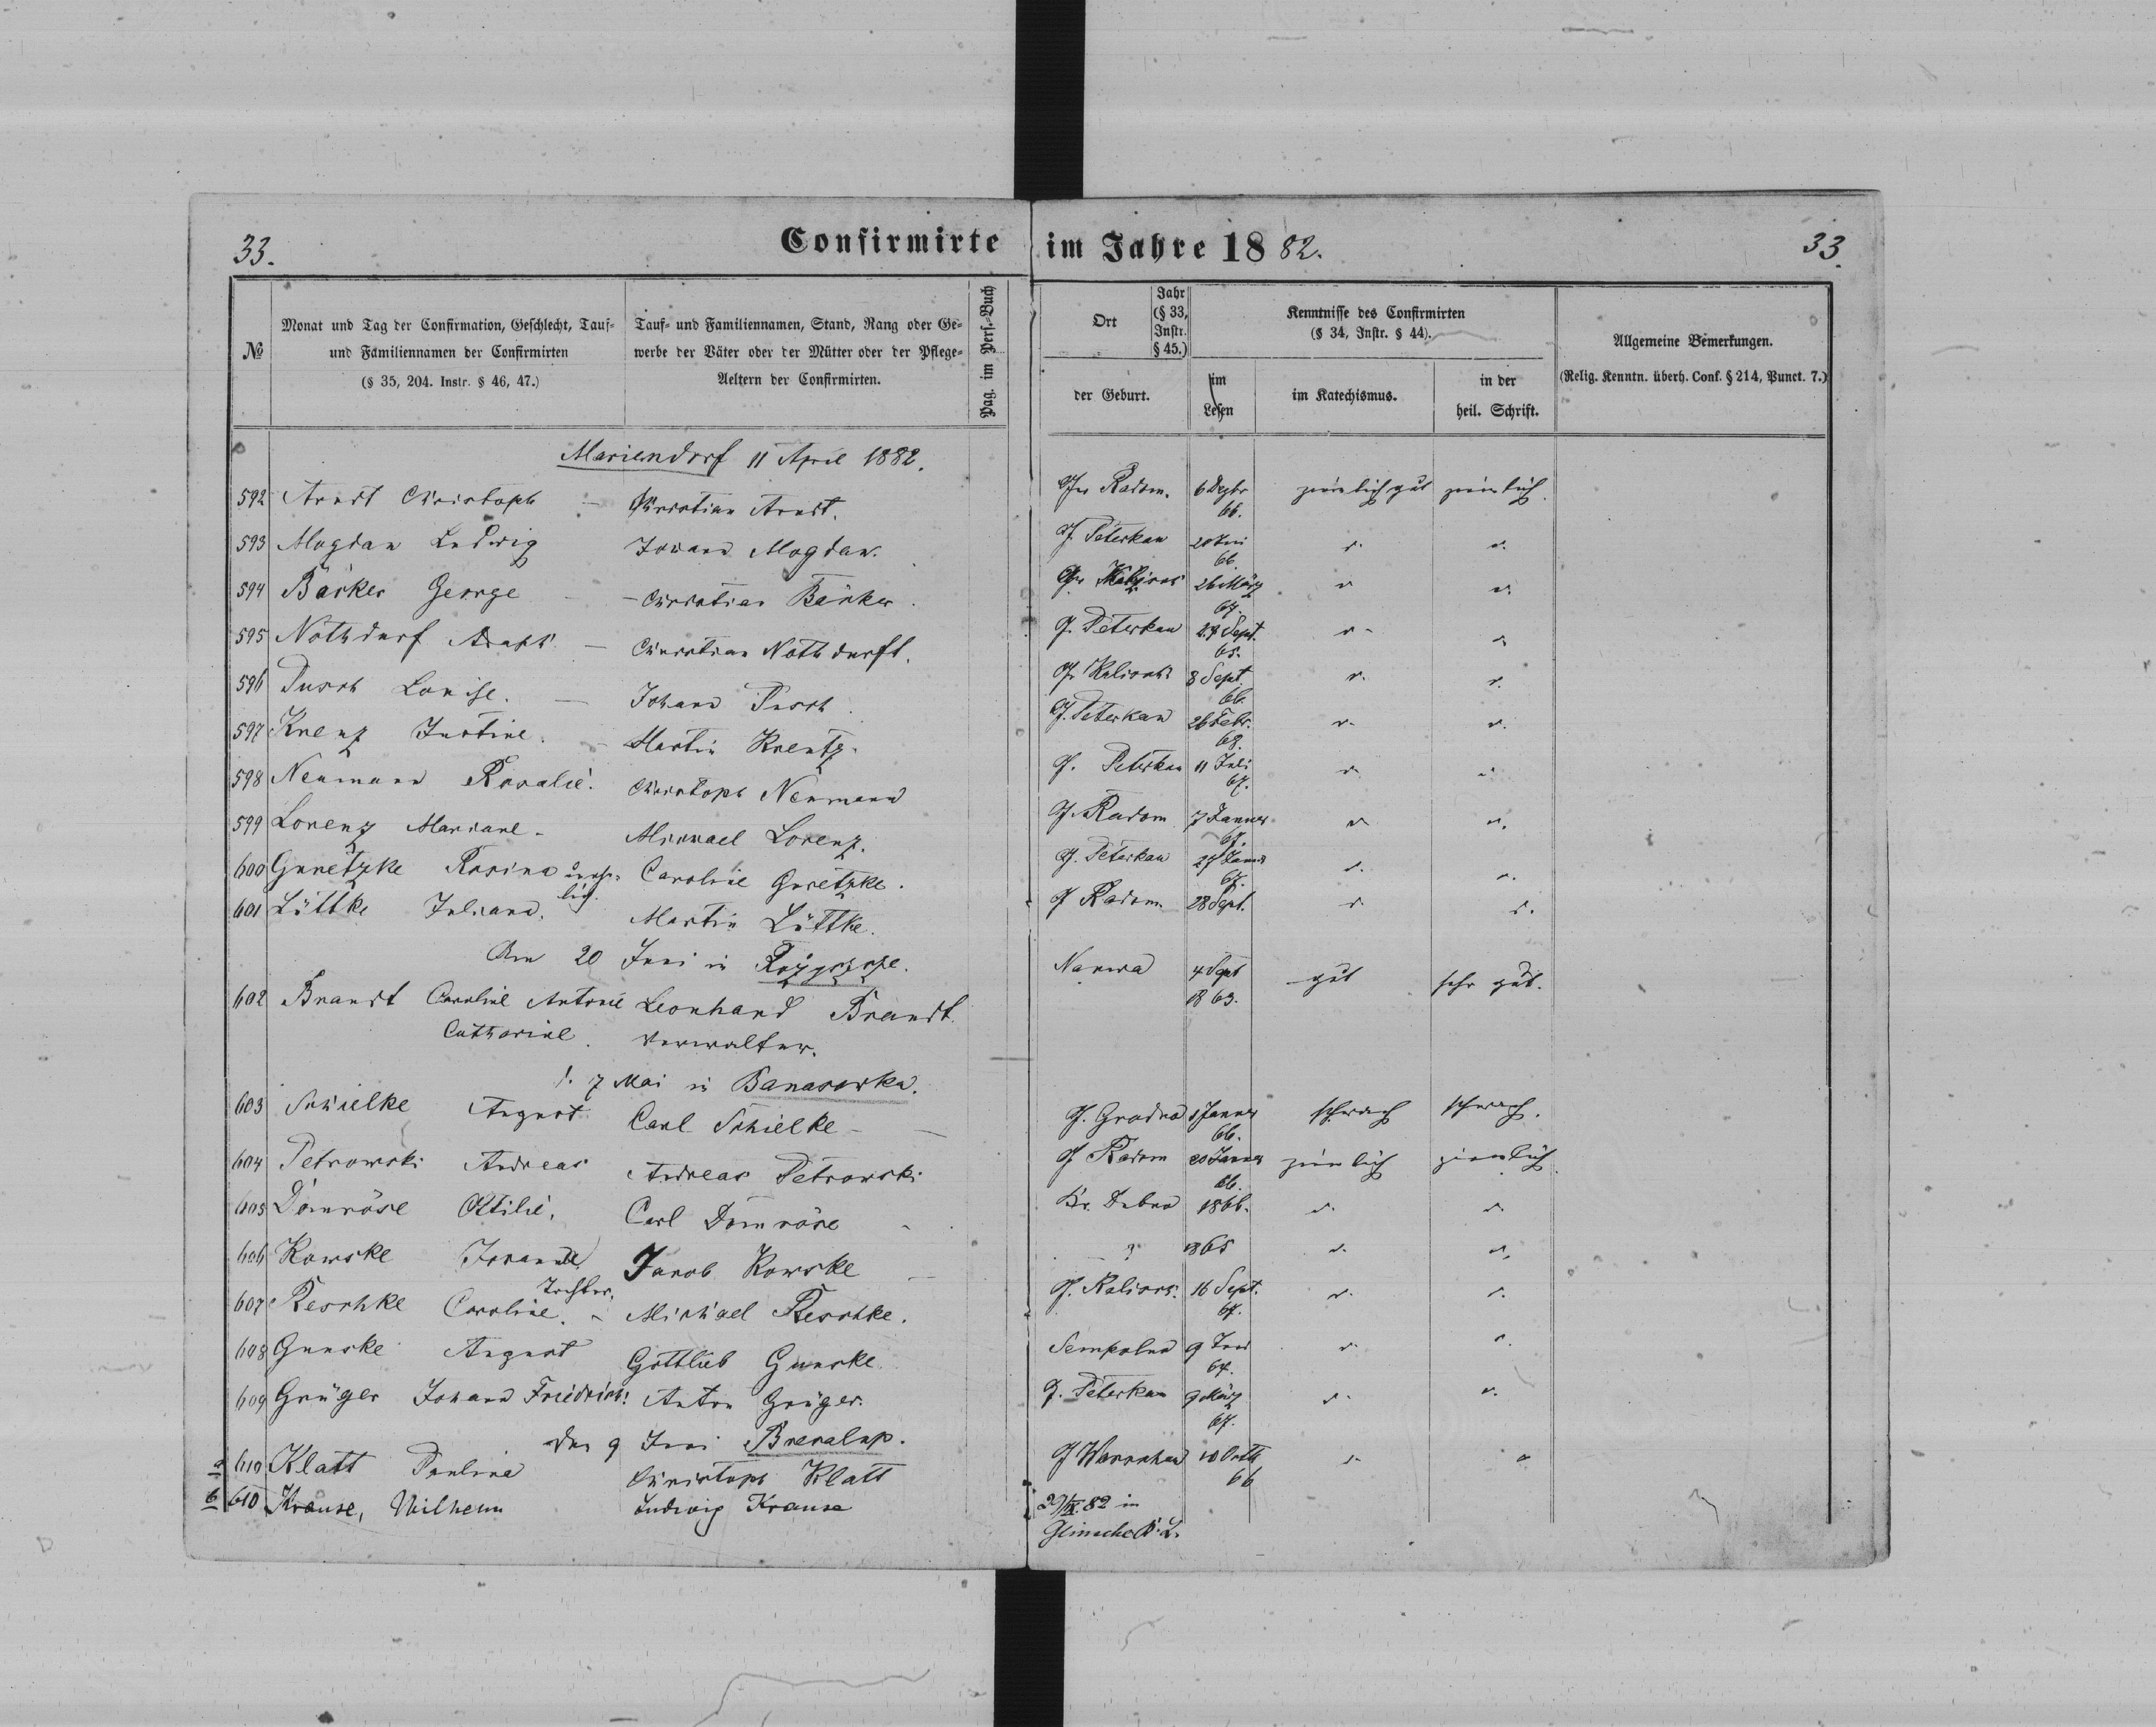 33.
Confirmirte im Jahre 1882.
33.
№
Monat und Tag der Confirmation, Geschlecht, Tauf- und Familiennamen der Confirmirten (§ 35, 204. Instr. § 46, 47.)
Tauf- und Familiennamen, Stand, Rang oder Gewerbe der Väter oder der Mütter oder der Pflege-Aeltern der Confirmirten.
Pag. im Pers.-Buch
Ort
Jahr (§ 33, Instr. § 45.)
der Geburt.
Kenntnisse des Confirmirten (§ 34, Instr. § 44).
im Lesen
im Katechismus.
in der heil. Schrift.
Allgemeine Bemerkungen.
(Relig. Kenntn. überh. Conf. § 214, Punct. 7.)
Mariendorf 11 April 1882.
592 Arndt Christoph – Christian Arndt. Gv Radom. 6 Dezbr 66. ziemlich gut ziemlich.
593 Mogdan Ludwig Johann Mogdan. G. Peterkau 20 Juni 66.
594 Bäcker George – Christian Bäcker. 26 März 67.
595 Nothdurf – Christian Nothdurft. G. Peterkau 29 Sept. 65.
596 Pusch Louise. – Johann Pusch. G. Kalisch 8 Sept. 66.
597 Krenz Justine. – Martin Krentz. G. Peterkau 26 Febr. 68.
598 Neumann Rosalie. Christoph Neumann G. Peterkau 11 Juli 67.
599 Lorenz Mariane – Michael Lorenz. G. Radom 7 Januar 67.
600 Guretzke Rosina unehelig. Caroline Guretzke. G. Peterkau 27 Januar 67.
601 Lüttke Juliana. Martin Lüttke. G Radom. 28 Sept.
Am 20 Juni in
602 Brandt Caroline Antonie Leonhard Brandt Narwa 4 Sept gut sehr gut.
Catharine. Verwalter. 1863.
7 Mai in Banasowka.
603 Schielke August Carl Schielke – G. Grodno 1 Januar 66. schwach schwach.
604 Petrowski Andreas Andreas Petrowski G Radom 20 Januar 66. ziemlich ziemlich.
605 Domröse Ottilie. Carl Domröse Kr. Dubno 1866.
606 Kowske Johanne Jacob Kowske – ? 1865
Tochter.
607 Reschke Caroline. – Michael Reschke. G. Kalisch. 16 Sept. 67.
608 Gunske August Gottlieb Gunske Sempolno 9 Juni 64.
609 Grüger Johann Friedrich. Anton Grüger. G. Peterkau 9 März 67.
den 9 Juni
a 610 Klatt Paulina Christoph Klatt G Warschau 10 66
b 610 Krause, Wilhelm Ludwig Krause 29/IX 82 in